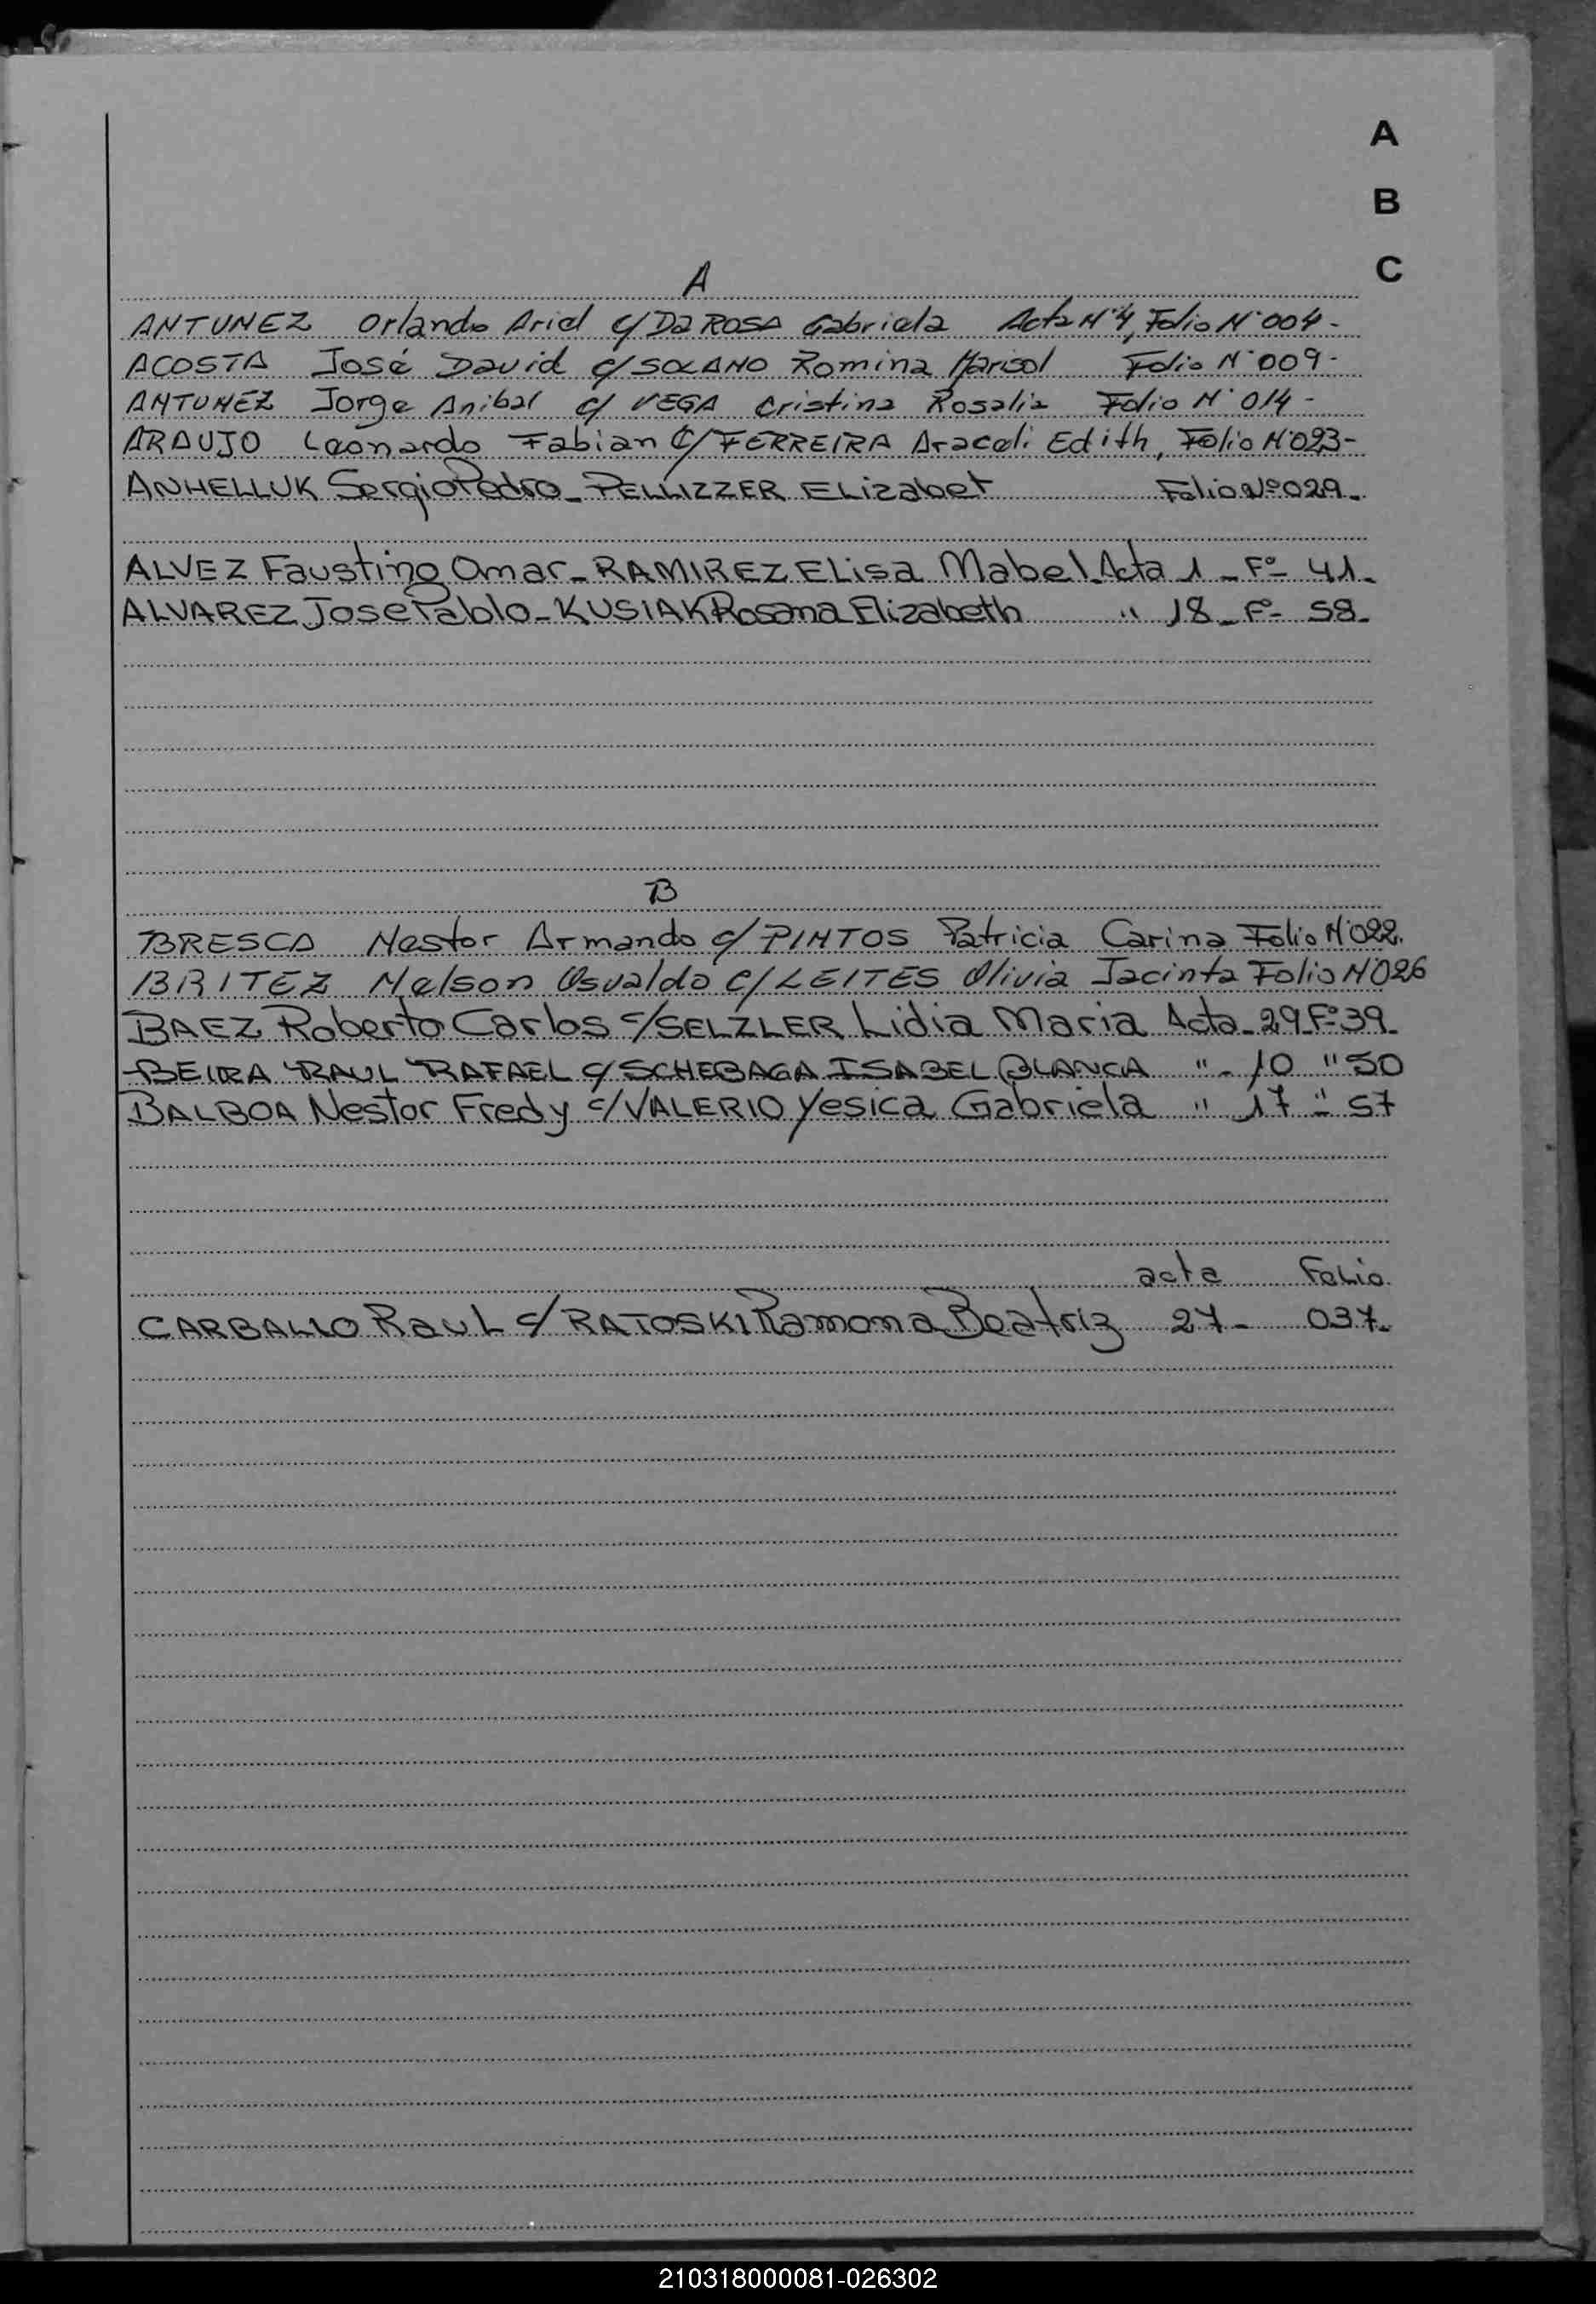 A
B
C
A
ANTUNEZ Orlando Ariel c/ Da ROSA Gabriela Acta N°4, Folio N°004-
ACOSTA José David c/ SOLANO Romina Marisol Folio N°009-
ANTUNEZ Jorge Anibal c/ VEGA Cristina Rosalia Folio N°014-
ARAUJO Leonardo Fabian C/ FERREIRA Araceli Edith, Folio N°023-
ANHELLUK Sergio Pedro - PELLIZZER ELizabet Folio Nº029.
ALVEZ Faustino Omar - RAMIREZ ELisa Mabel. Acta 1 - Fº- 41.
ALVAREZ Jose Pablo - KUSIAK Rosana Elizabeth " 18 - Fº- 58.
B
BRESCA Nestor Armando c/ PINTOS Patricia Carina Folio N°022.
BRITEZ Nelson Osvaldo c/ LEITES Olivia Jacinta Folio N°026
BAEZ Roberto Carlos c/ SELZLER Lidia Maria Acta - 29 Fº 39.
BEIRA RAUL RAFAEL c/ SCHEBAGA ISABEL BLANCA " - 10 " 50
BALBOA Nestor Fredy c/ VALERIO Yesica Gabriela " 17 " 57
acta Folio
CARBALLO RauL c/ RATOSKI Ramona Beatriz 27 - 037.
210318000081-026302